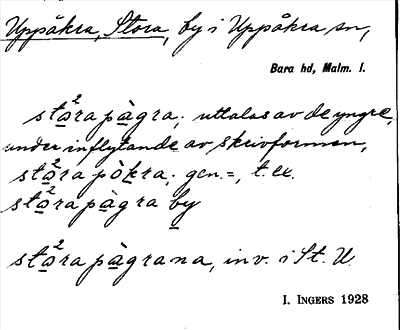 Uppåkra, Stora, by i Uppåkra sn,
Bara hd, Malm. l.
sta²rapàgra; uttalas av de yngre,
under inflytande av skrivformen,
sta²rapòkra; gen. =, t. ex.
sta²rapàgra by
sta²rapàgrana, inv. i St. U.
I. INGERS 1928